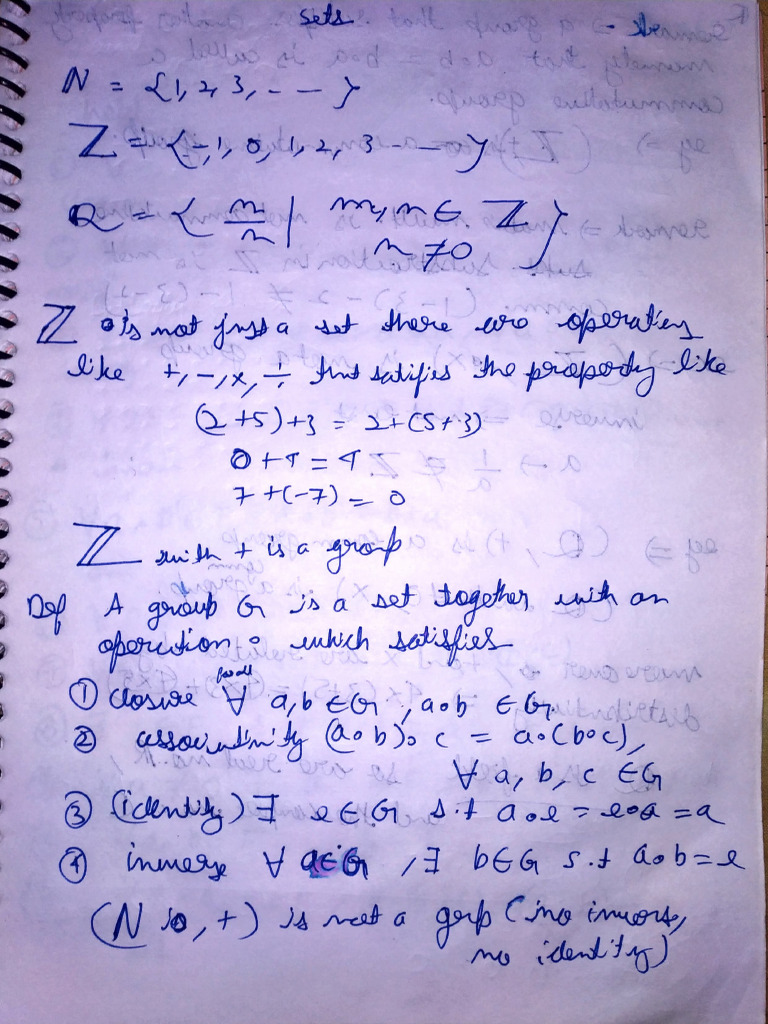 sets
N = {1, 2, 3, - - }
ℤ = {-, 1, 0, 1, 2, 3 - - - }
Q = { m/n | m, n ∈ ℤ
n ≠ 0 }
ℤ is not just a set there are operations
like +, -, x, ÷ that satifies the property like
(2+5)+3 = 2+(5+3)
0+4 = 4
7+(-7) = 0
ℤ with + is a group
Def A group G is a set together with an
operation ∘ which satisfies
for all
① closure ∀ a, b ∈ G, a∘b ∈ G
② associativity (a∘b)∘c = a∘(b∘c),
∀ a, b, c ∈ G
③ (identity) ∃ e ∈ G s.t a∘e = e∘a = a
④ inverse ∀ a ∈ G, ∃ b ∈ G s.t a∘b = e
(N, +) is not a grp (no invers,
no identity)